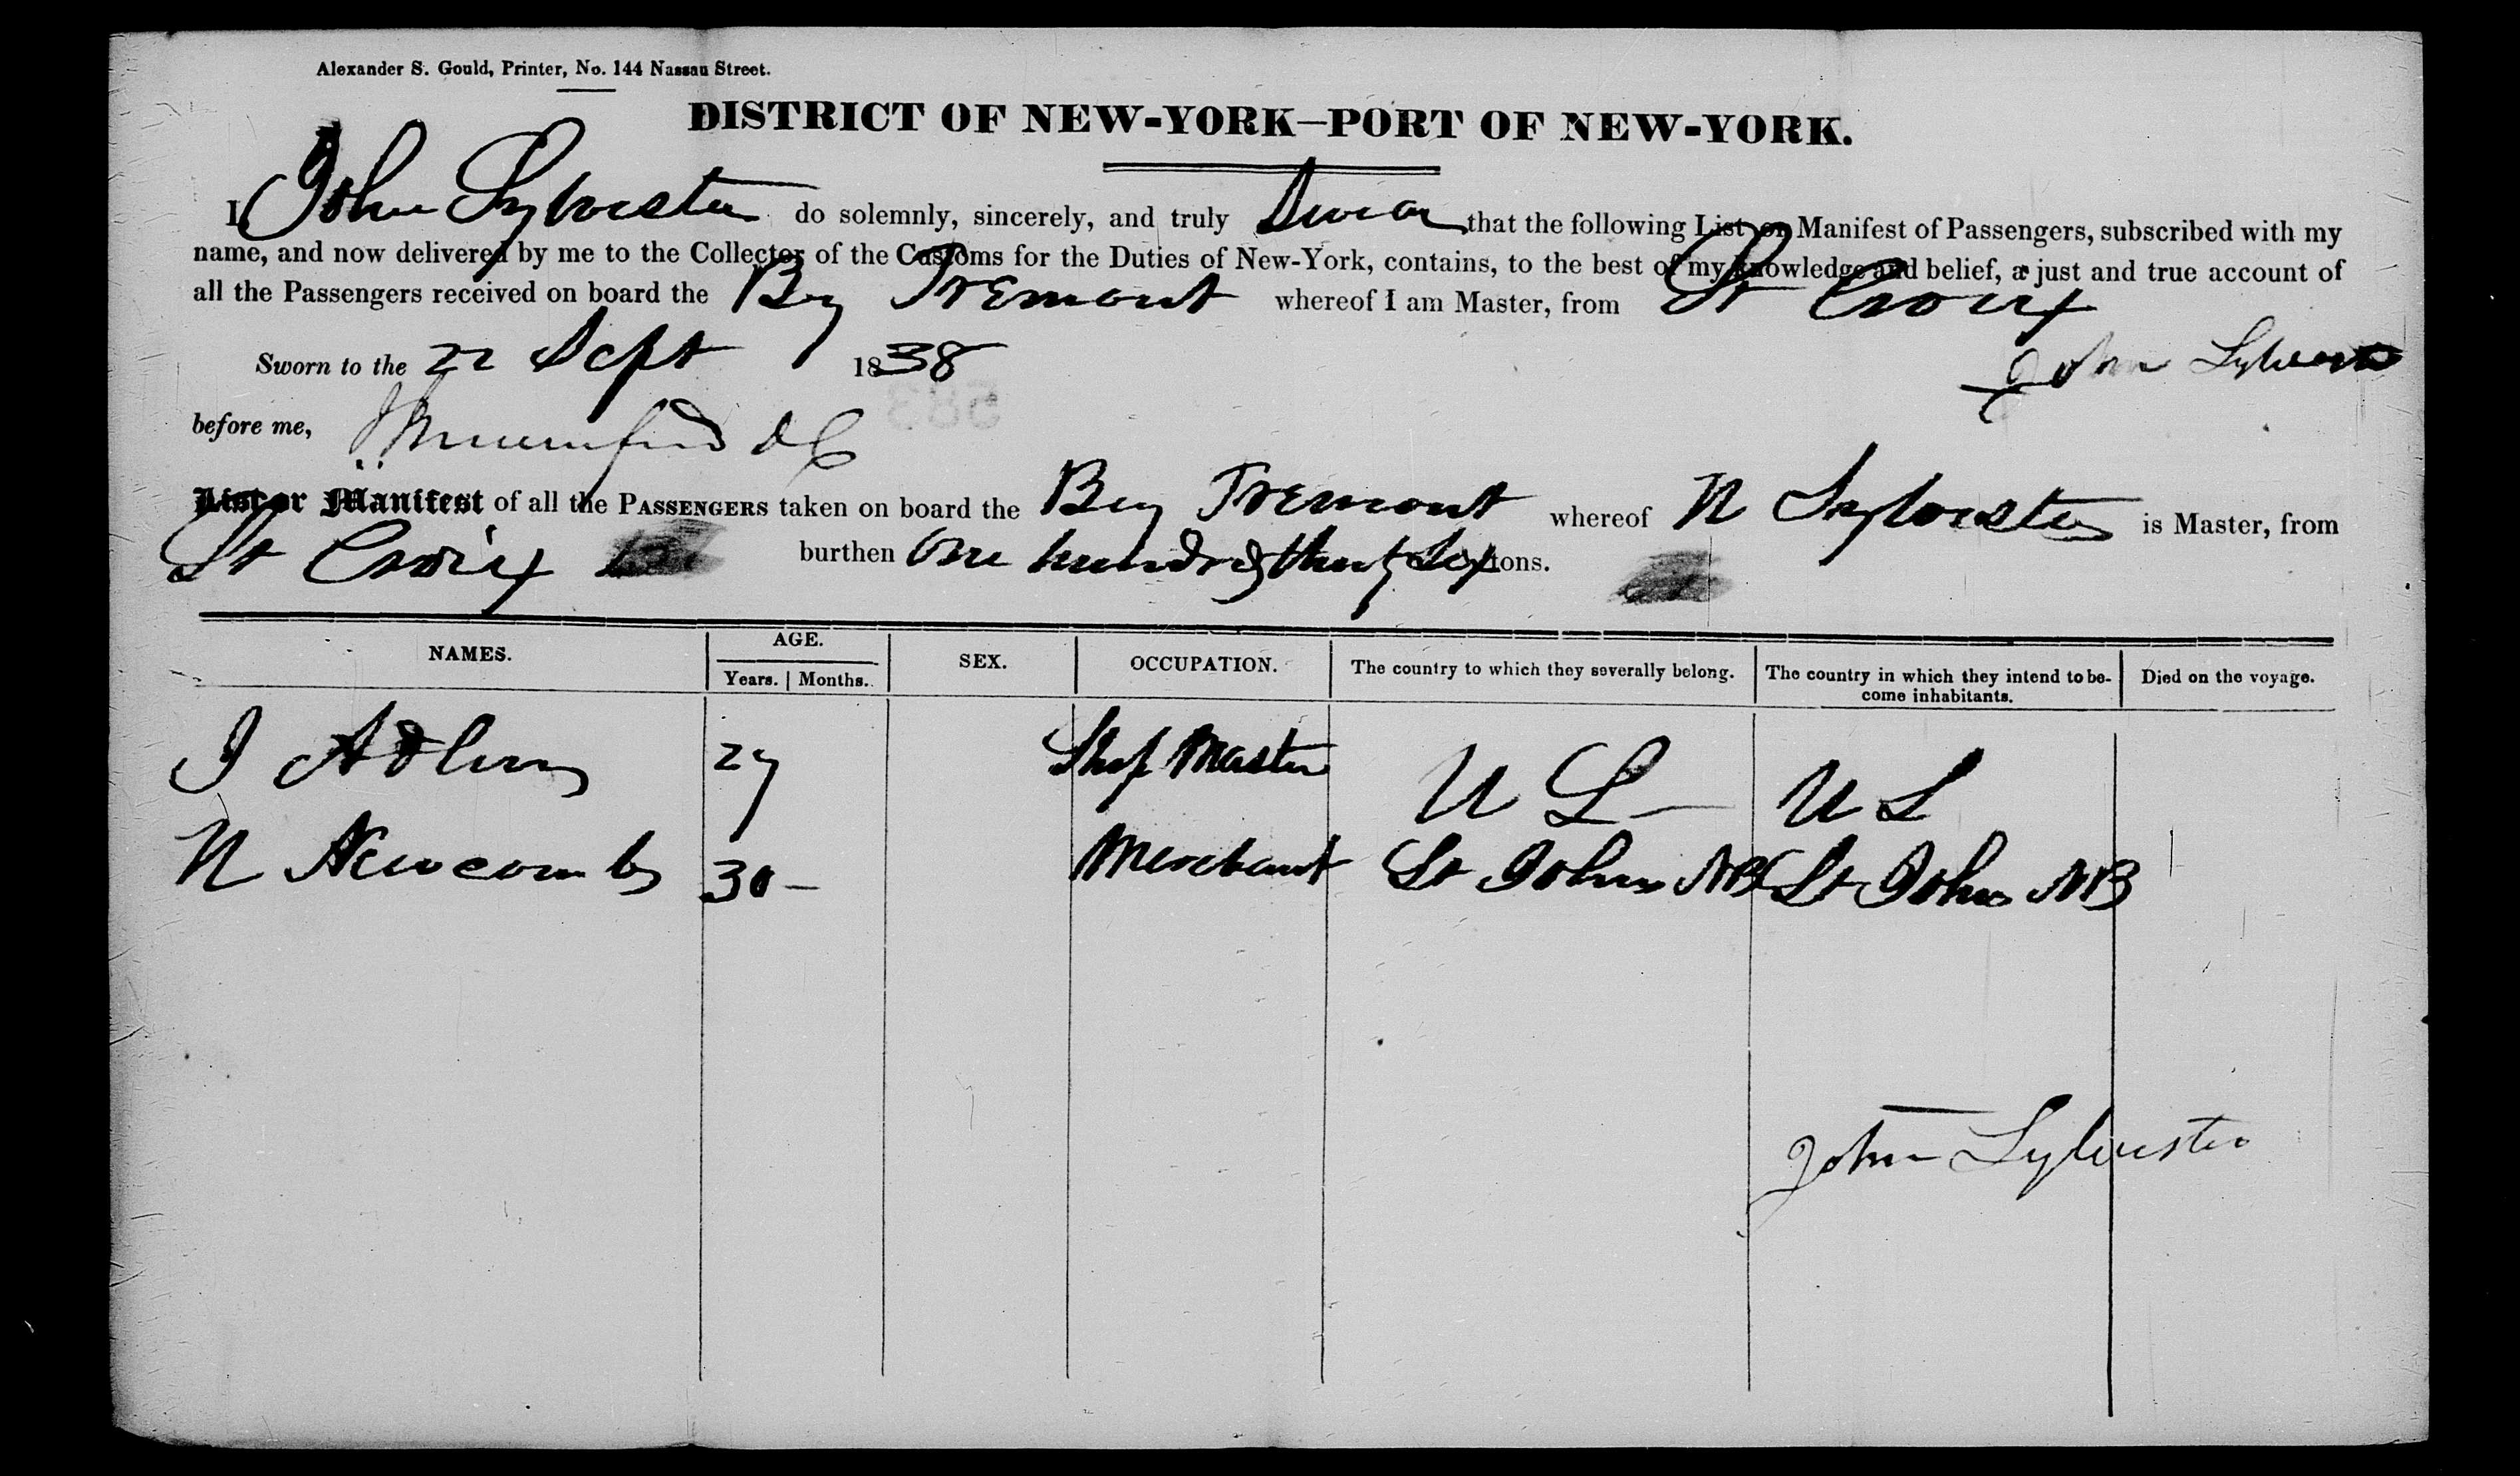 Alexander S. Gould, Printer, No. 144 Nassau Street.
DISTRICT OF NEW-YORK—PORT OF NEW-YORK.
I, John Sylvester do solemnly, sincerely, and truly Swear that the following List or Manifest of Passengers, subscribed with my
name, and now delivered by me to the Collector of the Customs for the Duties of New-York, contains, to the best of my knowledge and belief, a just and true account of
all the Passengers received on board the Brig Tremont whereof I am Master, from St Croix
Sworn to the 22 Sept 1838 John Sylvester
before me, DC
List or Manifest of all the PASSENGERS taken on board the Brig Tremont whereof N Sylvester is Master, from
St Croix burthen One hundred & thirty Six tons.
NAMES. AGE. Years. Months. SEX. OCCUPATION. The country to which they severally belong. The country in which they intend to become inhabitants. Died on the voyage.
J 27 Ship Master U S U S
N Newcomb 30 Merchant St Johns NB St Johns NB
John Sylvester